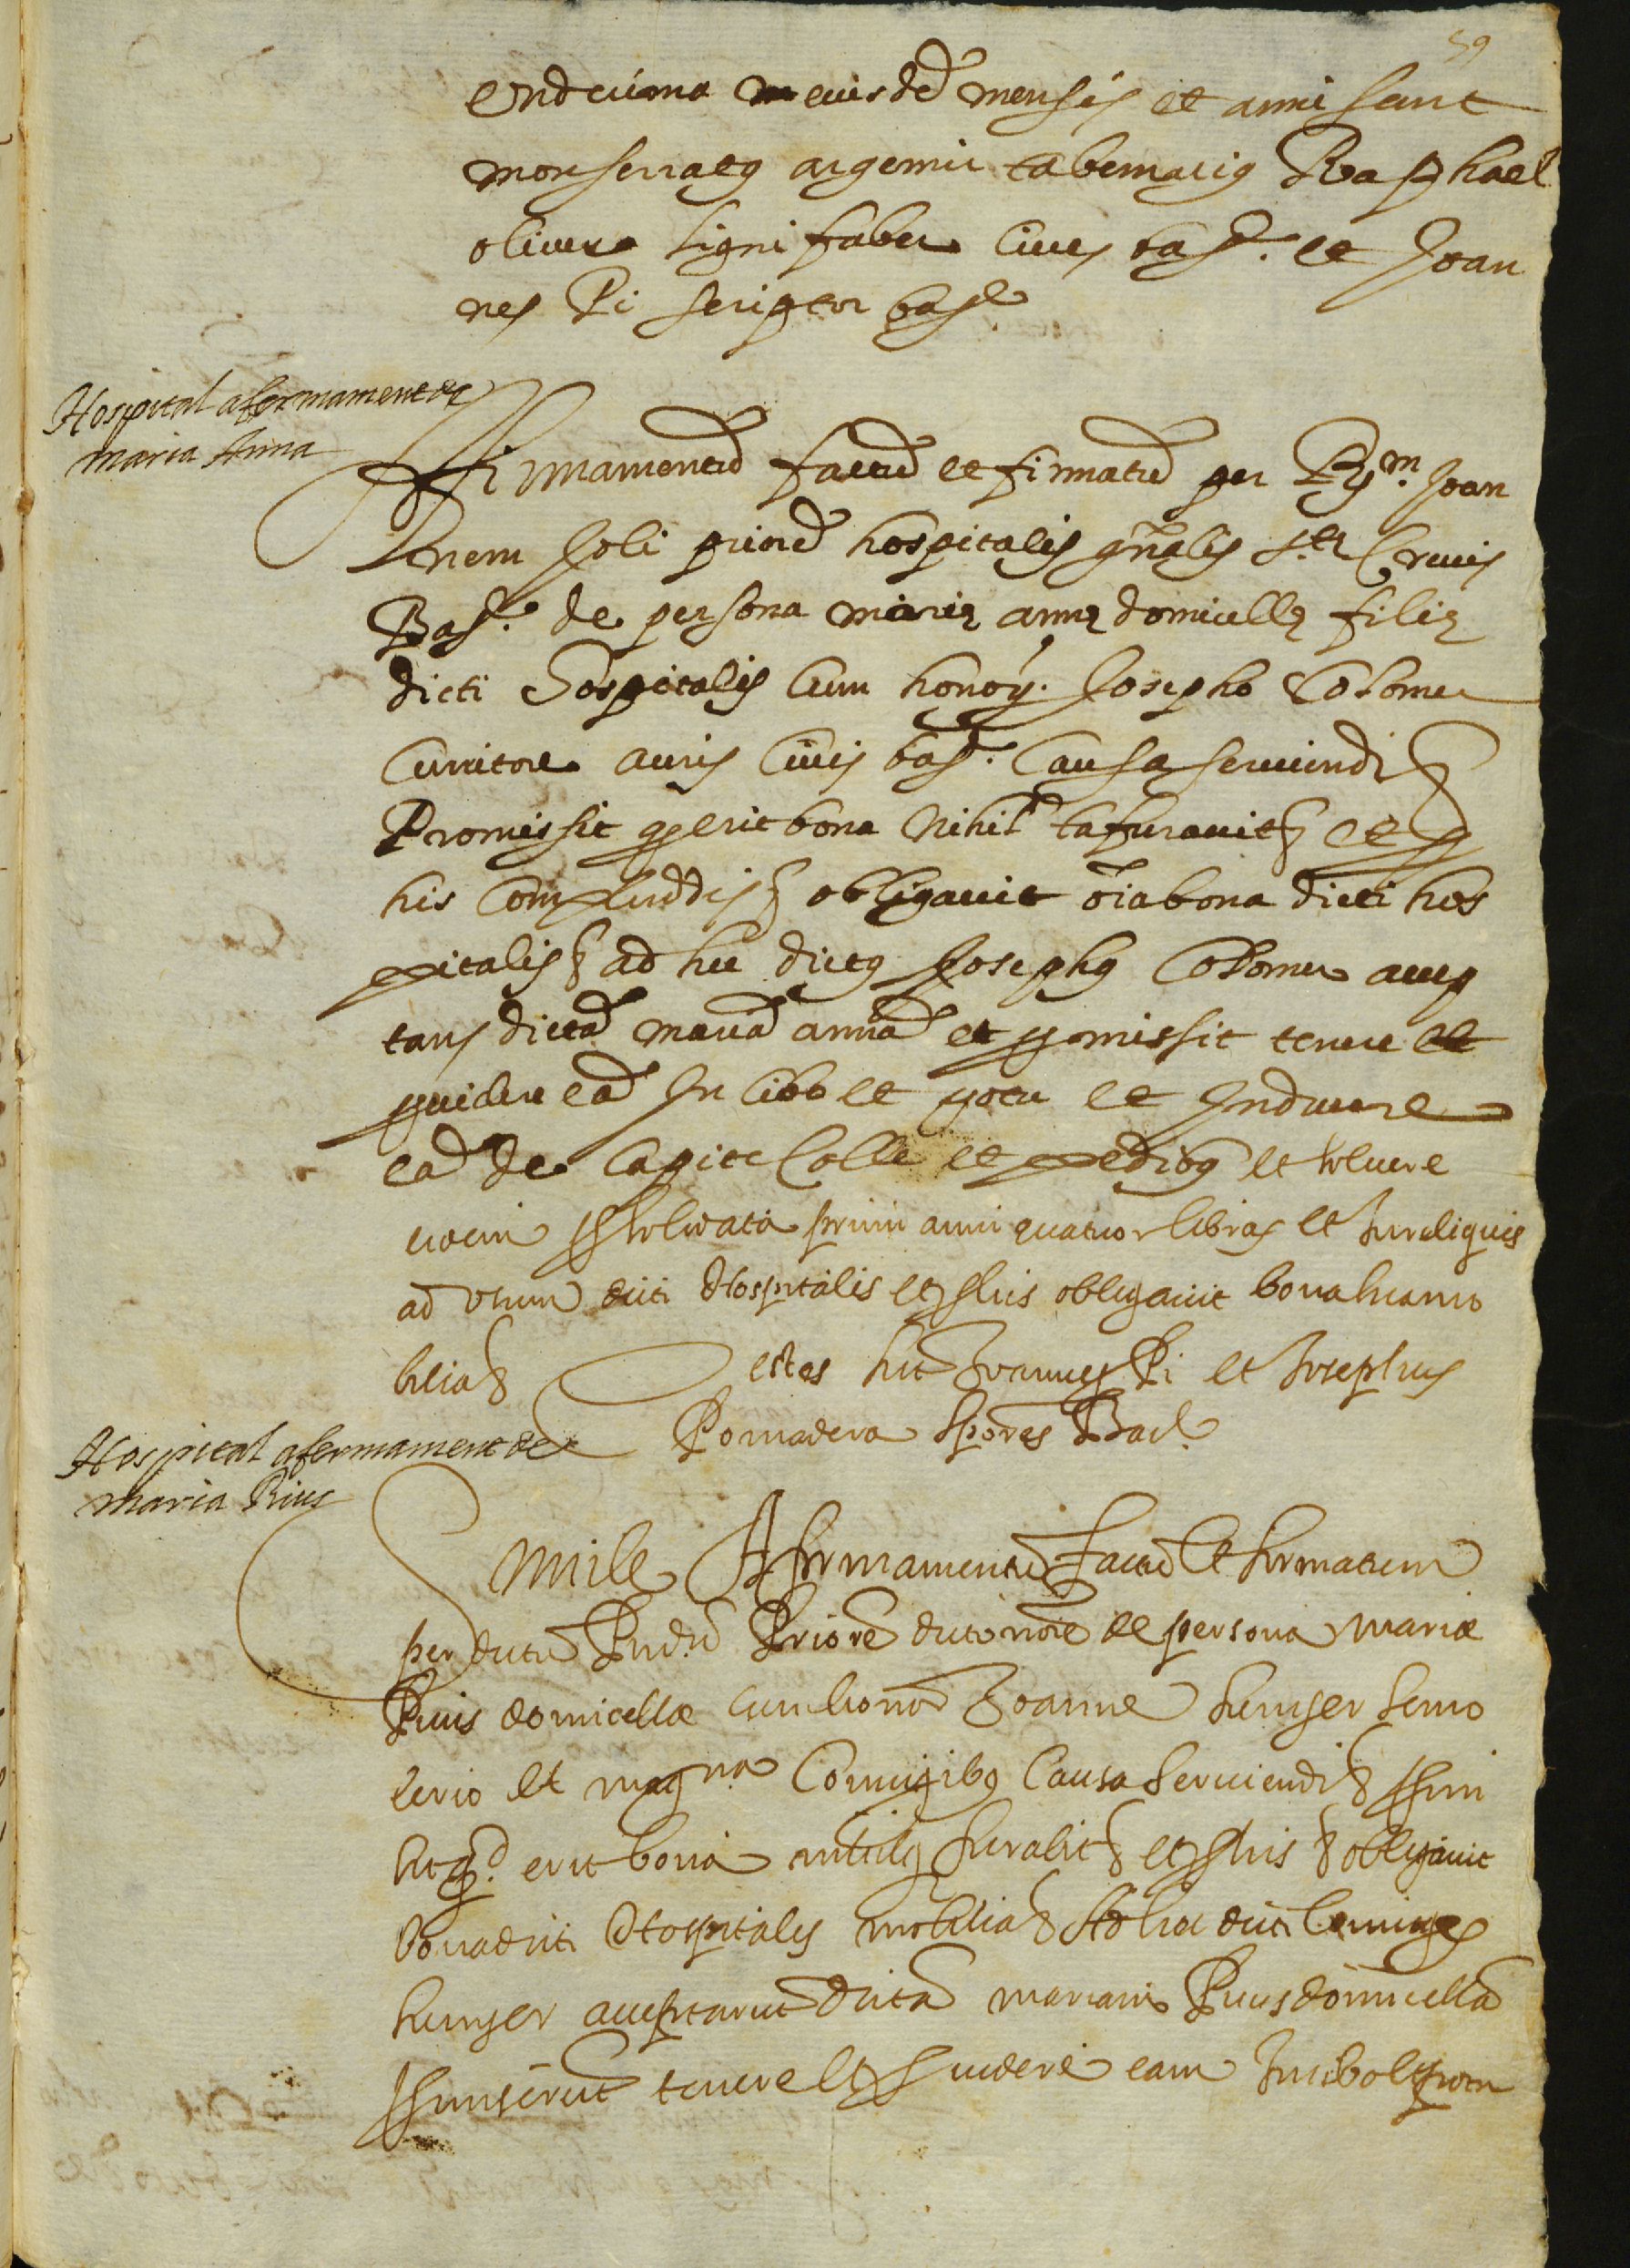 59
endecima eiusdē mensis et anni sunt
monserratus argemir tabernarius Raphael
oliver ligni faber cives bar. et Joan
nes Pi scriptor bar.
Hospital afermament de
maria Anna
Affirmamentū factū et firmatū per Rm. Joan
nem Soli priorē hospitalis gñalis s.te Crucis
Bar. de persona marie anne domicelle filie
dicti Hospitalis cum honor. Josepho Colomer
curritore auris civis bar. Causa serviendi &
Promissit q erit bona nihil furavit & et p
his complendis & obligavit oīa bona dicti hos
pitalis & ad hec dictus Josephus Colomer accep
tans dictā mariā annā et promissit tenere et
providere eā in cibo et potu et Induere
eā de capite colle et pedibus et solvere
primi anni quatuor libras et In reliquis
ad usum dicti Hospitalis et p his obligavit bona sua mo
bilia &
Testes sūt Joannes Pi et Josephus
Pomadera Sptores Bar.
Hospital afermament de
maria Rius
Simile Afirmamentū factū et firmatum
per dictū Priorē dicto nōie de persona mariæ
Rius domicellæ cum honor Joanne
et magna Coniugibus Causa Serviendi &
sit q. erit bona furabit & et p his & obligavit
bona dicti Hospitalis mobilia & Ad hec dicti Coniuges
acceptarūt dictā mariam Rius domicellā
promiserūt tenere et providere eam In cibo et potu